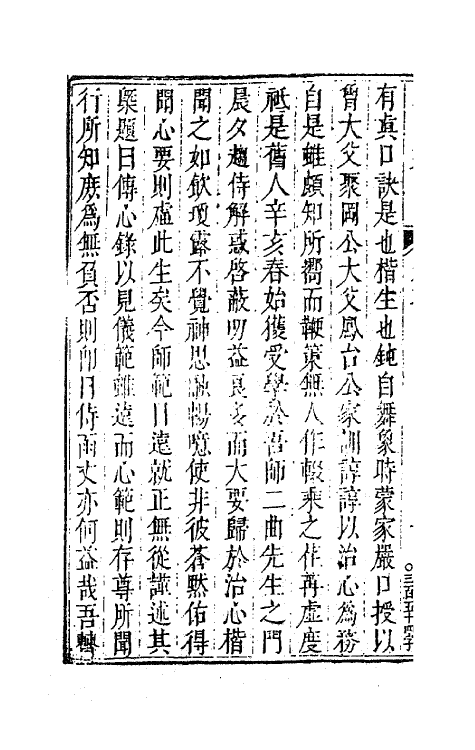 有真口訣是也楷生也鈍自舞象時蒙家嚴口授以
曾大父聚岡公大父鳳台公家訓諄諄以治心為務
自是雖頗知所嚮而鞭策無人作輟乘之荏苒虛度
祗是舊人辛亥春始獲受學於吾師二曲先生之門
晨夕趨侍解惑啓蔽叨益良多而大要歸於治心楷
聞之如飲瓊露不覺神思融暢噫使非彼蒼黙佑得
聞心要則虛此生矣今師範日遠就正無從謹述其
槩題曰傳心錄以見儀範雖遠而心範則存尊所聞
行所知庶為無負否則卽日侍函丈亦何益哉吾轉